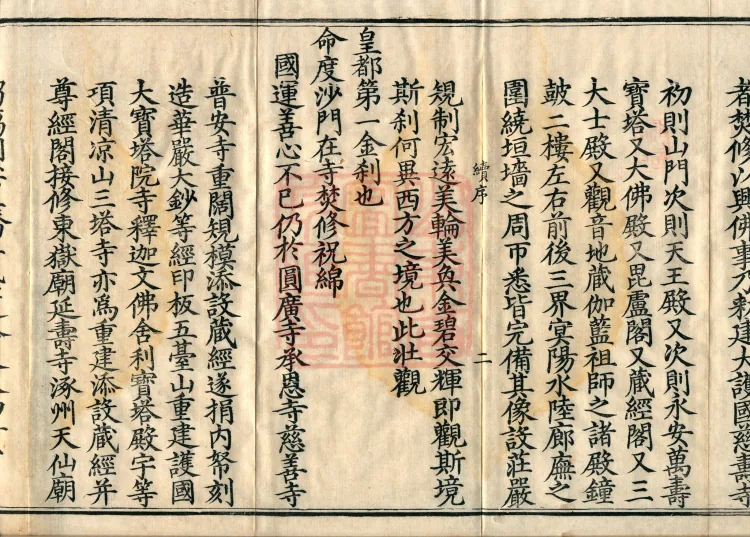 都焚修沙興佛事乃敕建大護國慈壽寺
初則山門次則天王殿又次則永安萬壽
寶塔又大佛殿又毘盧閣又藏經閣又三
大士殿又觀音地藏伽藍祖師之諸殿鐘
皷二樓左右前後三界㝠陽水陸廊廡之
圍繞垣墻之周帀悉皆完備其像設莊嚴
續序
二
規制宏遠美輪美奐金碧交輝即觀斯境
斯刹何異西方之境也此壯觀
皇都第一金刹也
命度沙門在寺焚修祝綿
國運善心不已仍於圓廣寺承恩寺慈善寺
普安寺重闊規模添設藏經遂捐內帑刻
造華嚴大鈔等經印板五臺山重建護國
大寶塔院寺釋迦文佛舍利寶塔殿宇等
項清凉山三塔寺亦為重建添設藏經并
尊經閣接修東嶽廟延壽寺涿州天仙廟